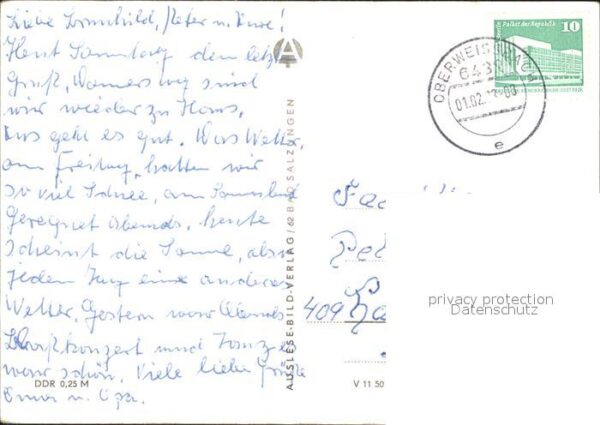 Liebe Irmhild, Peter u. Uwe!
Heut Sonntag den letzten
Gruß, Donnerstag sind
wir wieder zu Haus,
uns geht es gut. Das Wetter,
am Freitag hatten wir
so viel Schnee, am Sonnabend
Geregnet Abends, heute
scheint die Sonne, also
jeden Tag eine anderes
Wetter, Gestern war Abends
konzert und Tanz es
war schön. Viele liebe Grüße
Oma u. Opa.
DDR 0,25 M
AUSLESE-BILD-VERLAG / 62 BAD SALZUNGEN
V 11 50
Palast der Republik
10
OBERWEISSBACH
643
01.02.
e
Fa
Pe
409 Ha
privacy protection
Datenschutz